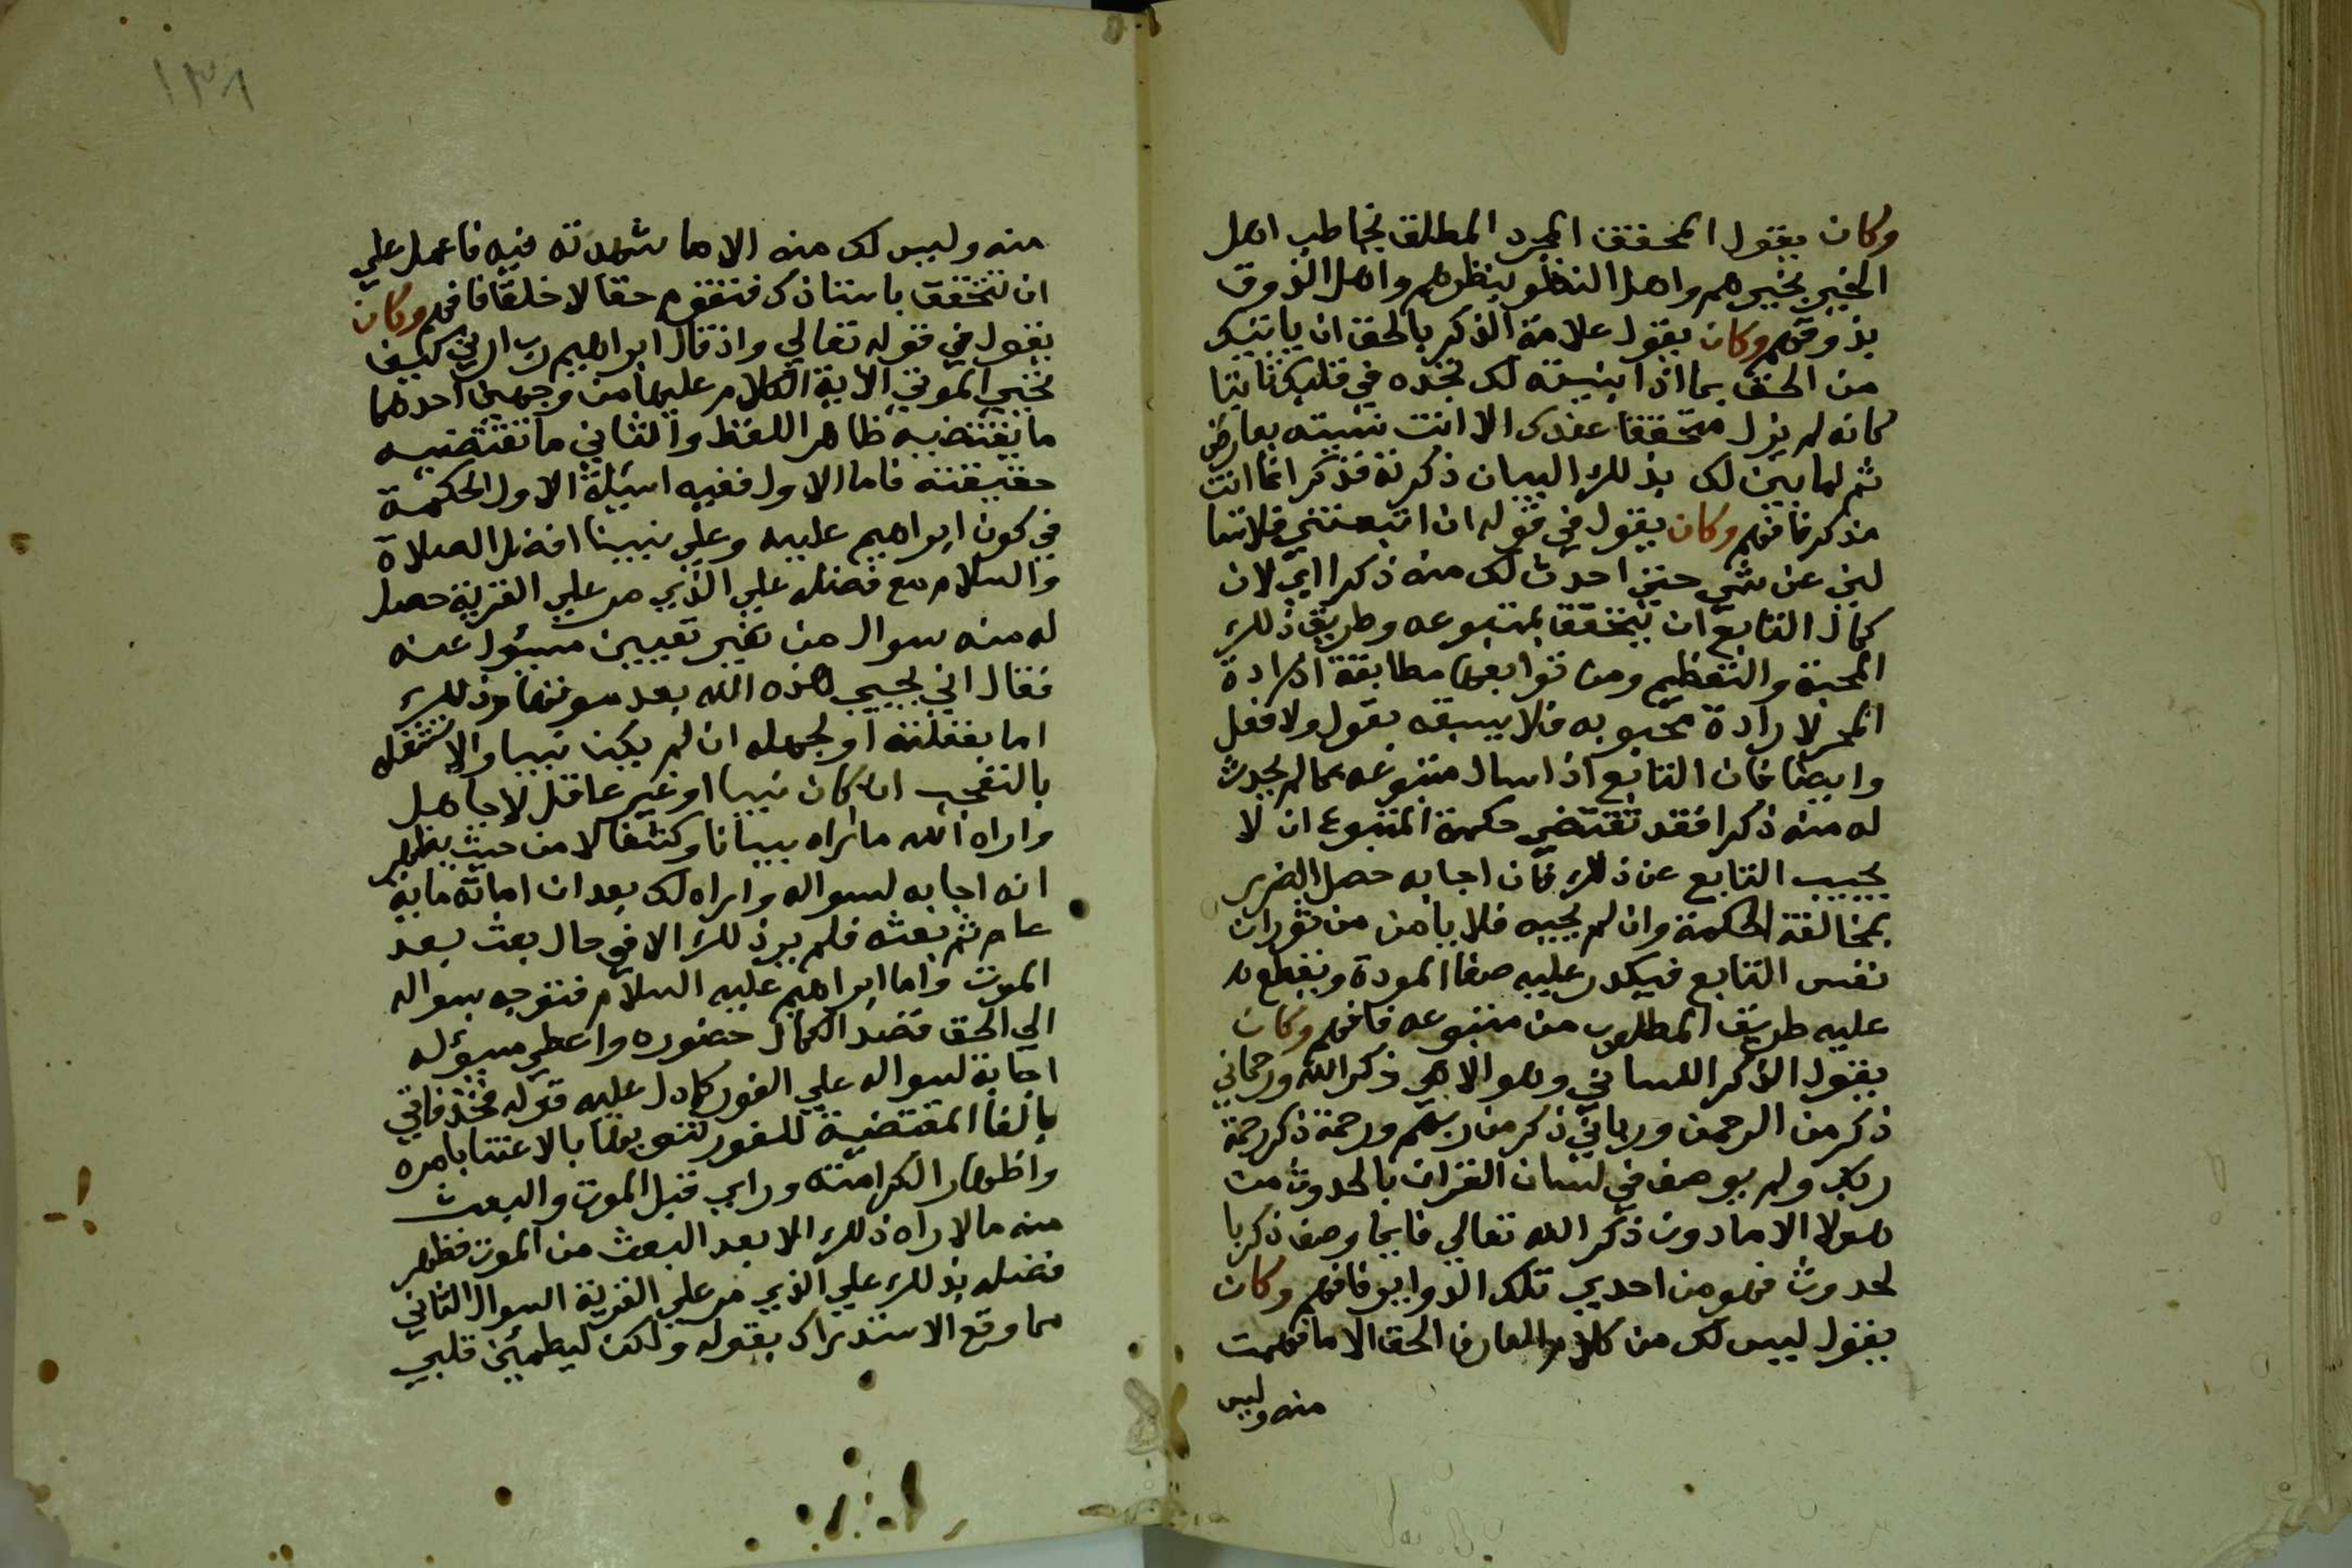 وكان يقول المحقق المجرد المطلق يخاطب اهل
الخبر بخبرهم واهل النظر بنظرهم واهل الذوق
بذوقهم وكان يقول علامة الذكر بالحق ان ياتيك
من الحق بما اذا بينته لك تجده في قلبك ثابتا
كانه لم يزل متحققا عندك الا انت نسيته بعارض
ثم لما بين لك بذلك البيان ذكرته فذكر انما انت
مذكر فافهم وكان يقول في قوله ان اتبعتني فلا تسا
لني عن شي حتي احدث لك منه ذكرا اي لان
كمال التابع ان يتحقق بمتبوعه وطريق ذلك
المحبة والتعظيم ومن توابعها مطابقة ارادة
المحب لارادة محبوبه فلا يسبقه بقول ولا فعل
وايضا فان التابع اذا سال متبوعه عما لم يحدث
له منه ذكرا فقد تقتضي حكمة المتبوع ان لا
يجيب التابع عن ذلك فان اجابه حصل الضرر
بمخالفة الحكمة وان لم يجبه فلا يامن من ثوران
نفس التابع فيكدر عليه صفا المودة وينقطع به
عليه طريق المطلوب من متبوعه فافهم وكان
يقول الذكر اللساني وهو الالهي ذكر الله ورحماني
ذكر من الرحمن ورباني ذكر من ربهم ورحمة ذكر رحمة
ربك ولم يوصف في لسان القران بالحدوث من
هولا الا ما دون ذكر الله تعالي فايما وصف ذكر با
لحدوث فهو من احدي تلك الدواير فافهم وكان
يقول ليس لك من كلام العارف الحق الا ما فهمت
منه وليس
١٣٨
منه وليس لك منه الا ما شهدته فيه فاعمل علي
ان تتحقق باستاذك فتقوم حقا لا خلقا فافهم وكان
يقول في قوله تعالي واذ قال ابراهيم رب ارني كيف
تحيي الموتي الاية الكلام عليها من وجهين احدهما
ما يقتضيه ظاهر اللفظ والثاني ما تقتضيه
حقيقته فاما الاول ففيه اسئلة الاول الحكمة
في كون ابراهيم عليه وعلي نبينا افضل الصلاة
والسلام مع فضله علي الذي مر علي القرية حصل
له منه سوال من غير تعيين مسؤل عنه
فقال اني يحيي هذه الله بعد موتها وذلك
اما بغفلته او لجهله ان لم يكن نبيا والا شغله
بالتعجب ان كان نبيا او غير غافل لا جاهل
واراه الله ما اراه بيانا وكشفا لا من حيث يظهر
انه اجابه لسواله واراه لك بعد ان اماته ماية
عام ثم بعثه فلم ير ذلك الا في حال بعث بعد
الموت واما ابراهيم عليه السلام فتوجه بسواله
الي الحق قصد الكمال حضوره واعطي مسؤله
اجابة لسواله علي الفور كما دل عليه قوله فخذ فاتي
بالفا المقتضية للفور تنويها بالاعتنا بامره
واظهارا لكرامته وراي قبل الموت والبعث
منه ما لا راه ذلك الا بعد البعث من الموت فظهر
فضله بذلك علي الذي مر علي القرية السوال الثاني
مما وقع الاستدراك بقوله ولكن ليطمئن قلبي